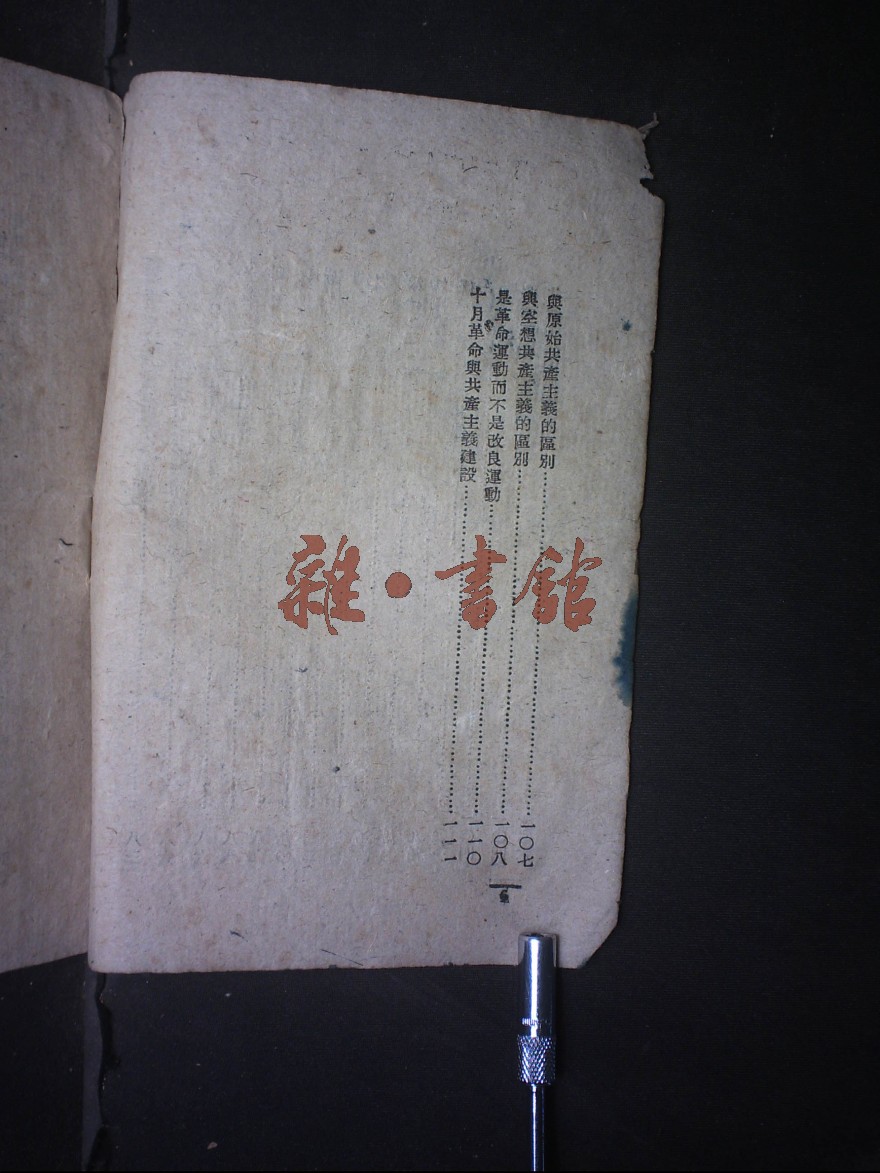 與原始共產主義的區別……一〇七
與空想共產主義的區別……一〇八
是革命運動而不是改良運動……一一〇
十月革命與共產主義建設……一一一
6
雜·書館